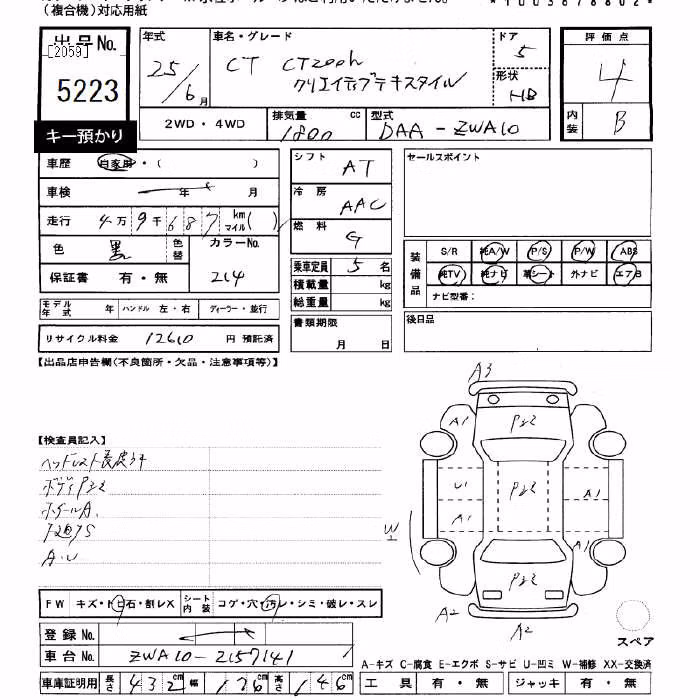 (複合機)対応用紙
*10036788​02*
出品No.
[2059]
5223
キー預かり
年式 25/6月
車名・グレード CT CT200h クリエイティブテキスタイル
ドア 5
形状 HB
評価点 4
内装 B
2WD・4WD
排気量 1800 cc
型式 DAA-ZWA10
車歴 自家用・( )
車検 年 月
走行 4万9千687 km マイル( )
色 黒 色替
カラーNo. 214
保証書 有・無
モデル年式 年 ハンドル 左・右 ディーラー・並行
リサイクル料金 12610 円 預託済
シフト AT
冷房 AAC
燃料 G
乗車定員 5 名
積載量 kg
総重量 kg
書類期限 月 日
セールスポイント
装備品 S/R 純A/W P/S P/W ABS
純TV 純ナビ 革シート 外ナビ エアB
ナビ型番:
後日品
【出品店申告欄(不良箇所・欠品・注意事項等)】
【検査員記入】
ボディPシミ
ホイールA.
A.U
FW キズ・トビ石・割レX シート内装 コゲ・穴・汚レ・シミ・破レ・スレ
登録No.
車台No. ZWA10-2157141
車庫証明用 長さ 432cm 幅 176cm 高さ 146cm
A3
A1
Pシミ
U1
A1
Pシミ
A1
W
A1
Pシミ
A2
A2
スペア
A-キズ C-腐食 E-エクボ S-サビ U-凹ミ W-補修 XX-交換済
工具 有・無 ジャッキ 有・無